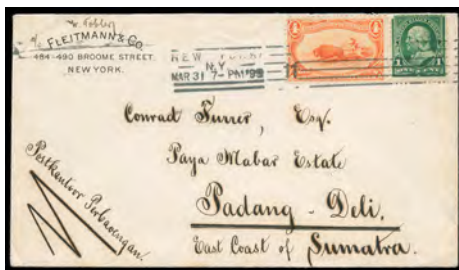 c/o W. Tobler
FLEITMANN & CO.
484-490 BROOME STREET,
NEW YORK.
NEW YORK
N.Y.
MAR 31 7-PM '99
4
1
1
Conrad Furrer, Esq.
Paya Mabar Estate
Padang - Deli,
East Coast of Sumatra.
Postkantoor Perbaoengan.